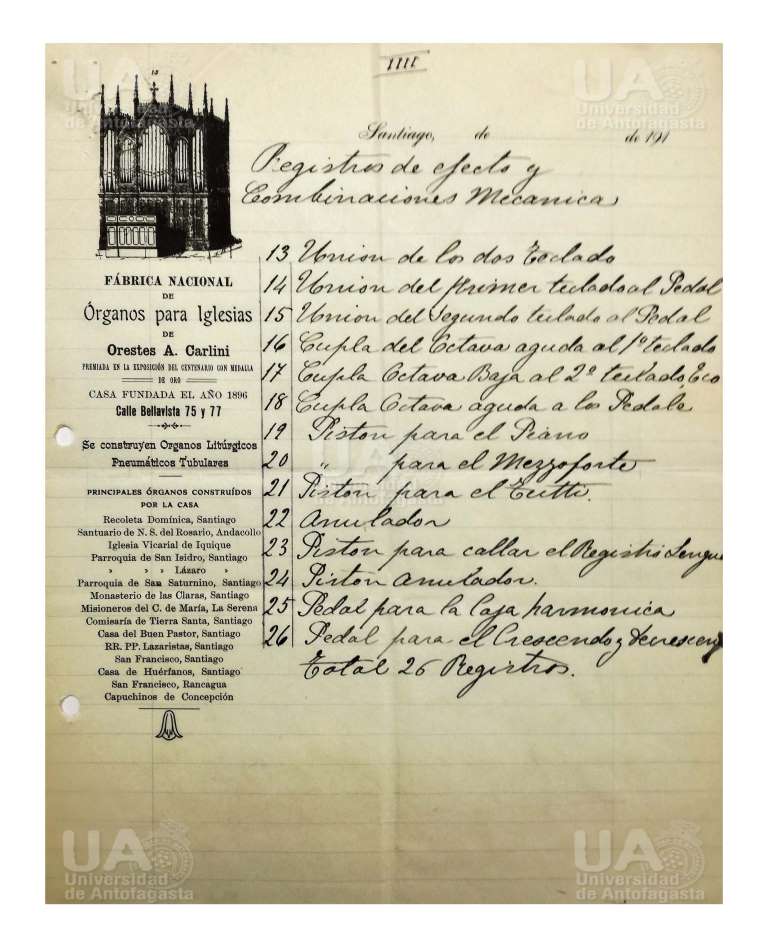 IIII
13
Santiago, de de 191
Registros de efecto y
Combinaciones Mecanica
FÁBRICA NACIONAL
DE
Órganos para Iglesias
DE
Orestes A. Carlini
PREMIADA EN LA EXPOSICIÓN DEL CENTENARIO CON MEDALLA
DE ORO
CASA FUNDADA EL AÑO 1896
Calle Bellavista 75 y 77
Se construyen Organos Litúrgicos
Pneumáticos Tubulares
PRINCIPALES ÓRGANOS CONSTRUÍDOS
POR LA CASA
Recoleta Domínica, Santiago
Santuario de N. S. del Rosario, Andacollo
Iglesia Vicarial de Iquique
Parroquia de San Isidro, Santiago
» » Lázaro »
Parroquia de San Saturnino, Santiago
Monasterio de las Claras, Santiago
Misioneros del C. de María, La Serena
Comisaría de Tierra Santa, Santiago
Casa del Buen Pastor, Santiago
RR. PP. Lazaristas, Santiago
San Francisco, Santiago
Casa de Huérfanos, Santiago
San Francisco, Rancagua
Capuchinos de Concepción
13 Union de los dos Teclado
14 Union del primer teclado al Pedal
15 Union del Segundo teclado al Pedal
16 Cupla del Octava aguda al 1º teclado
17 Cupla Octava Baja al 2º teclado, Eco
18 Cupla Octava aguda a los Pedale
19 Piston para el Piano
20 " para el Mezzoforte
21 Piston para el Tutti.
22 Anulador
23 Piston para callar el Registro Lengue
24 Piston Anulador.
25 Pedal para la Caja harmonica
26 Pedal para el Crescendo y Decrescen
Total 26 Registros.
UA
Universidad
de Antofagasta
UA
Universidad
de Antofagasta
UA
UA
Universidad
de Antofagasta
UA
Universidad
de Antofagasta